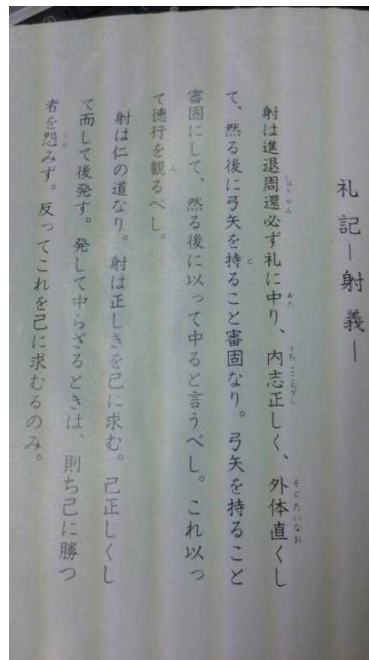 礼記―射義―
射は進退周還必ず礼に中り、内志正しく、外体直くし
て、然る後に弓矢を持ること審固なり。弓矢を持ること
審固にして、然る後に以って中ると言うべし。これ以っ
て徳行を観るべし。
射は仁の道なり。射は正しきを己に求む。己正しくし
て而して後発す。発して中らざるときは、則ち己に勝つ
者を怨みず。反ってこれを己に求むるのみ。